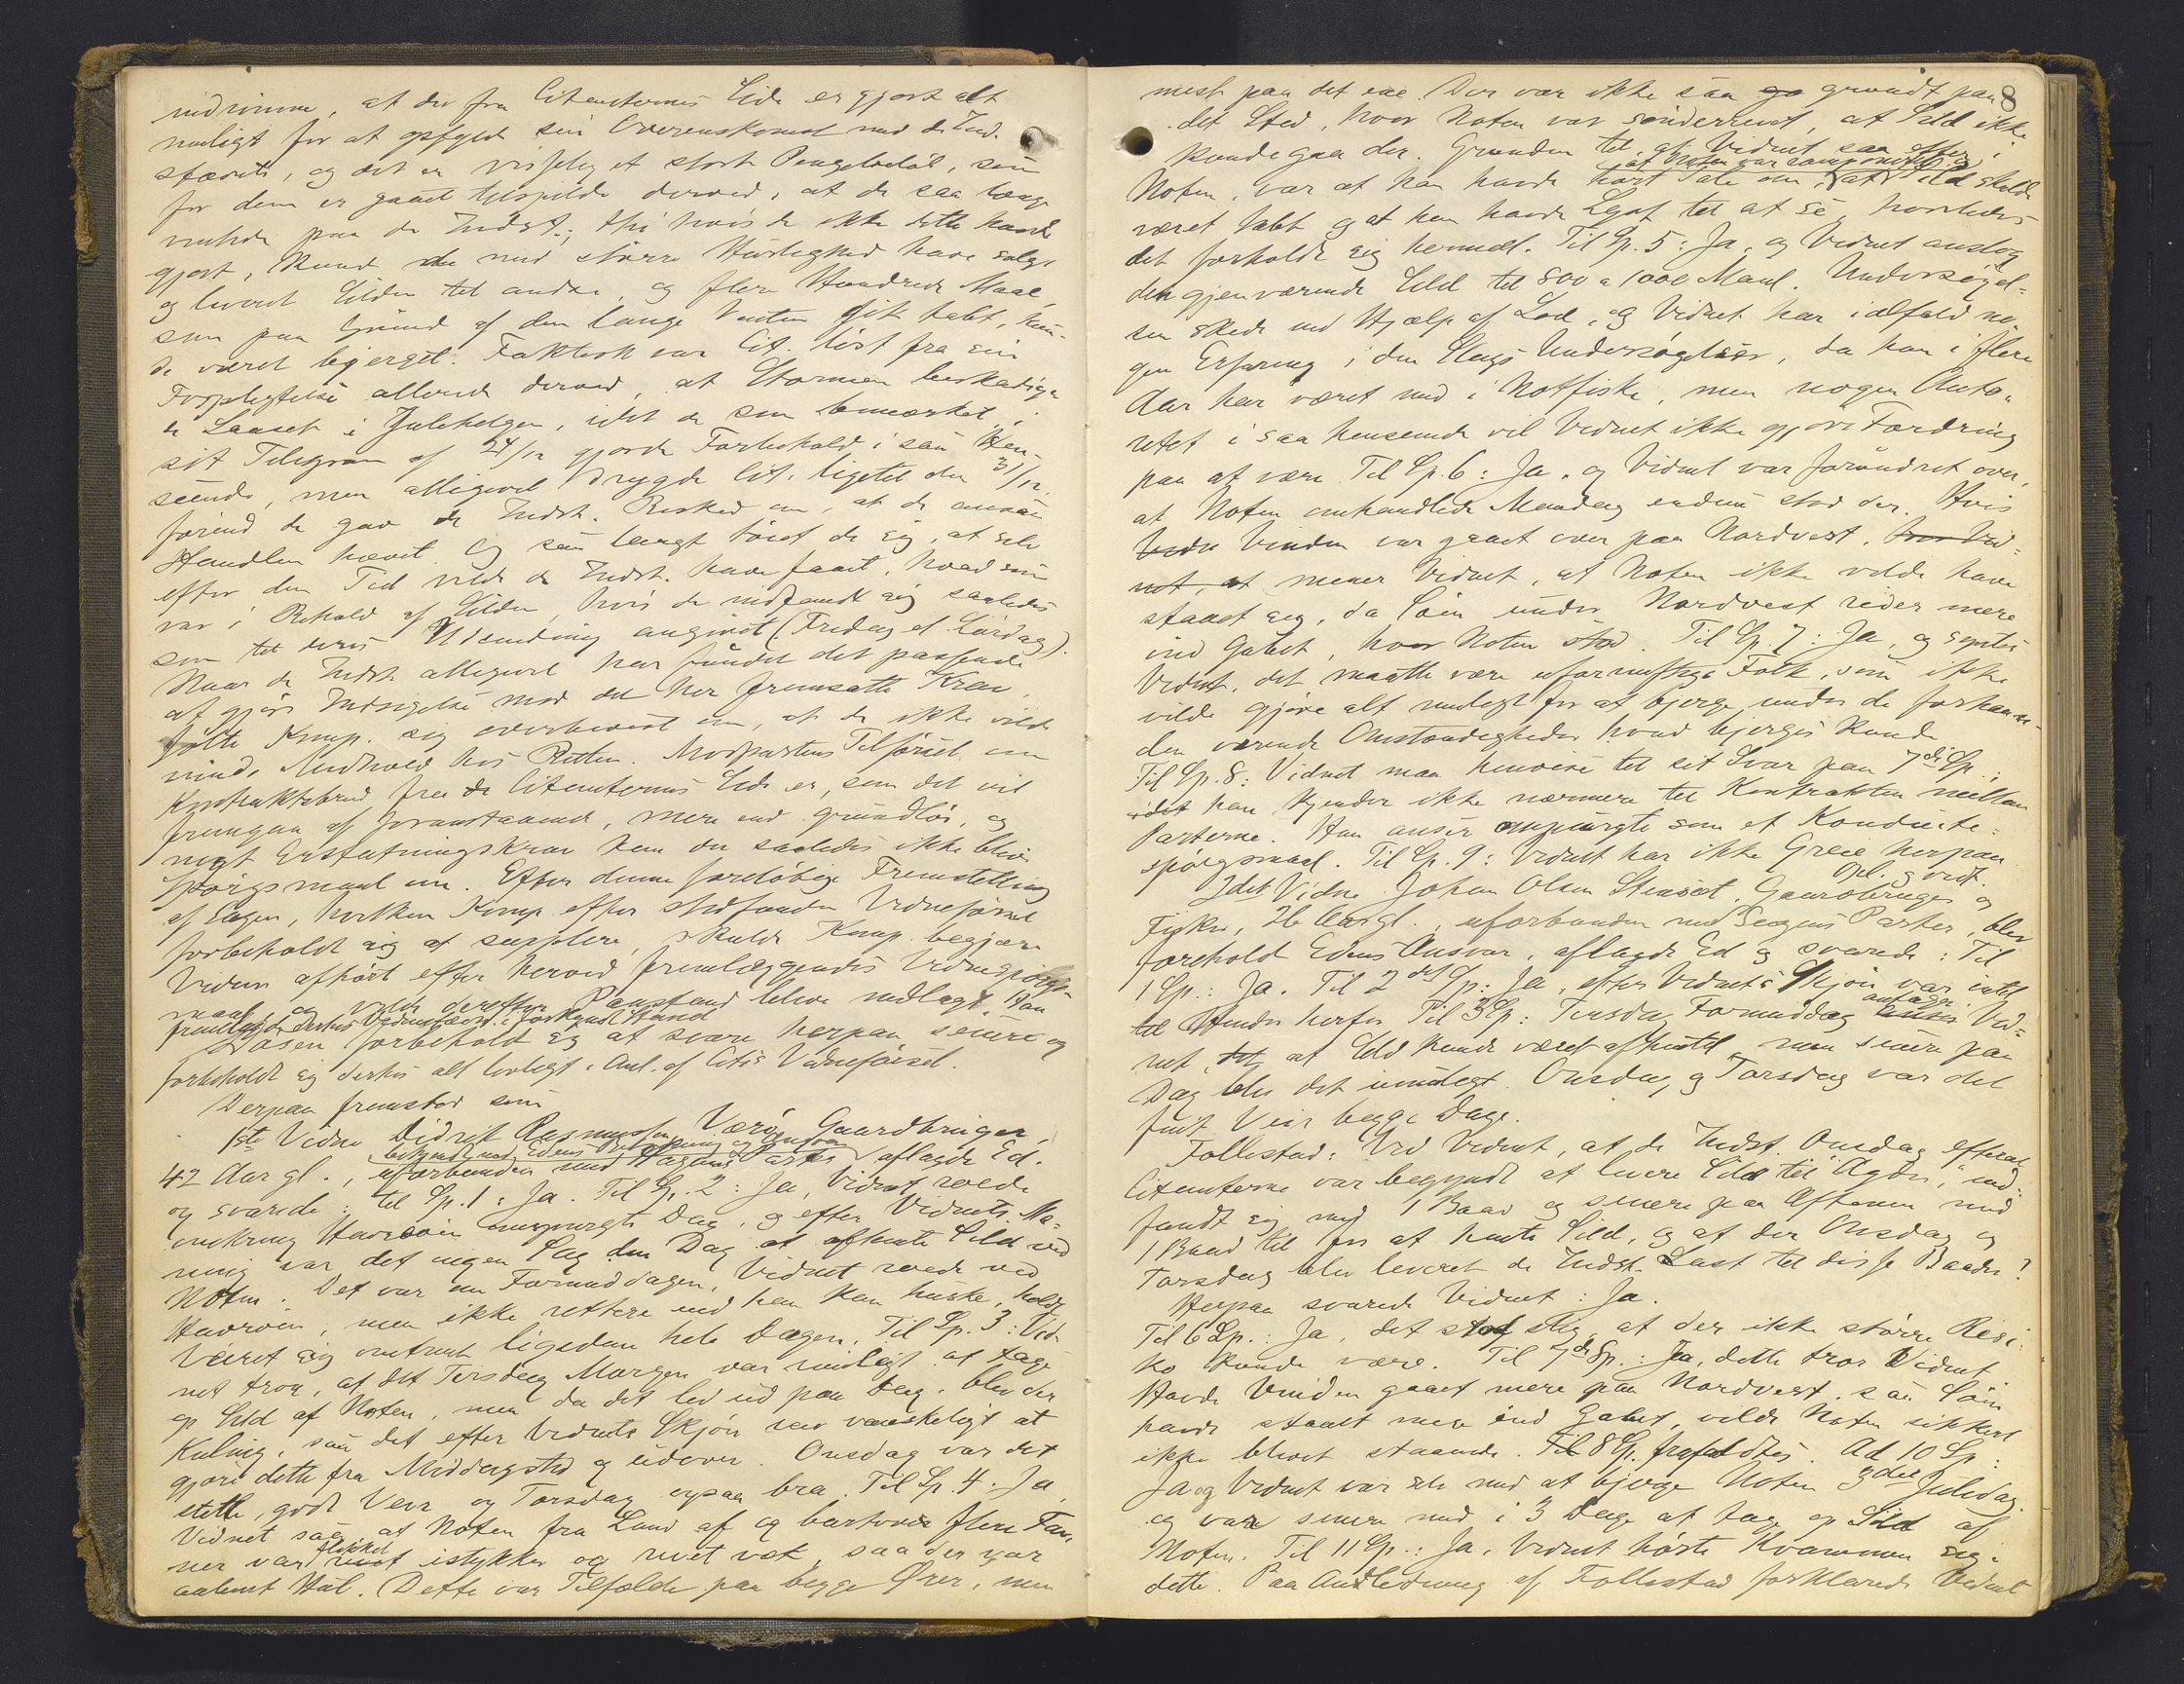 indrömme, at der fra Citanternes Side er gjort alt
muligt for at opfylde sin Overenskomst med de Ind-
stævnte, og det er visselig et stort Pengebeløb, som
for dem er gaaet tilspilde derved, at de saa længe
ventede paa de Indst.; thi hvis de ikke dette havde
gjort, kunde de med större Hurtighed have solgt
og leveret Silden til andre, og flere Hundrede Maal,
som paa Grund af den lange Venten gik tabt, kun-
de været bjerget. Faktisk var Cit. löst fra sin
Forpligtelse allerede derved, at Stormen beskadige-
de Laaset i Julehelgen, idet de som bemærket i
sit Telegram af 24/12 gjorde Forbehold i saa Hen-
seende, men alligevel drygde Cit. ligetil den 31/12,
förend de gav de Indst. Besked om, at de ansaa
Handlen hævet. Og saa langt töiet de sig, at selv
efter den Tid vilde de Indst. have faaet, hvad som
var i Behold af Silden, hvis de indfandt sig saaledes
som til deres Udsending angivet (Fredag el. Lördag).
Naar de Indst. alligevel har fundet det passende
at gjöre Indsigelse mod det her fremsatte Krav,
følte Komp. sig overbevist om, at de ikke vilde
vinde Medhold hos Retten. Modpartens Tilførsel om
Kontraktsbrud fra de Citanternes Side er, som det vil
fremgaa af foranstaaende, mere end grundlös, og
noget Erstatningskrav kan der saaledes ikke blive
Spørgsmaal om. Efter denne foreløbige Fremstilling
af Sagen, hvilken Komp. efter stedfunden Vidneførsel
forbeholdt sig at supplere, skulde Komp. begjære
Vidner afhört efter herved fremlæggendes Vidnespörgs-
maal og vilde derefter Paastand blive nedlagt. Han
fremlagde derhos Vidnestævn. i forkyndt Stand
Aasen forbeholdt sig at svare herpaa senere og
forbeholdt sig derhos alt lovligt i Anl. af Cit's Vidneførsel.
Derpaa fremstod som
1ste Vidne Didrik Rasmussen Værö, Gaardbruger,
bekjendt med Edens Betydning og Ansvar
42 Aar gl., uforbunden med Sagens Parter aflagde Ed.
og svarede: til Sp. 1: Ja. Til Sp. 2: Ja, Vidnet roede
omkring Havröin omspurgte Dag, og efter Vidnets Me-
ning var det ingen Sag den Dag at afhente Sild ved
Noten. Det var om Formiddagen, Vidnet roede ved
Havröin, men ikke rettere end han kan huske, holdt
Veiret sig omtrent ligedan hele Dagen. Til Sp. 3: Vid-
net tror, at det Tirsdag Morgen var muligt at tage
op Sild af Noten, men da det led ud paa Dag, blev der
Kuling, saa det efter Vidnets Skjön var vanskeligt at
gjöre dette fra Middagstid og udover. Onsdag var det
stille, godt Veir og Torsdag ogsaa bra. Til Sp. 4: Ja,
Vidnet saa, at Noten fra Land af og bortover flere Fav-
flekket
ner var revet istykker og revet væk, saa der var
aabent Hul. Dette var Tilfælde paa begge Ører, men
8
mest paa det ene. Der var ikke saa go grundt paa
det Sted, hvor Noten var sönderrevet, at Sild ikke
kunde gaa der. Grunden til, at Vidnet saa efter i
at Noten var ramponeret og
Noten, var at han havde hört Tale om, at Sild skulde
været tabt og at han havde Lyst til at se, hvorledes
det forholdt sig hermed. Til Sp. 5: Ja, og Vidnet anslog
den gjenværende Sild til 800 a 1000 Maal. Undersøgel-
sen skede ved Hjælp af Lod, og Vidnet har ialfald no-
gen Erfaring i den Slags Undersøgelser, da han i flere
Aar har været med i Notfiske, men nogen Auto-
ritet i saa Henseende vil Vidnet ikke gjøre Fordring
paa at være. Til Sp. 6: Ja, og Vidnet var forundret over,
at Noten omhandlede Mandag endnu stod der. Hvis
Vedn Vinden var gaaet over paa Nordvest, tror Vid-
net, at mener Vidnet, at Noten ikke vilde have
staaet sig, da Søin under Nordvest rider mere
ind Gabet, hvor Noten stod. Til Sp. 7: Ja, og syntes
Vidnet, det maatte være ufornuftige Folk, som ikke
vilde gjøre alt muligt for at bjerge under de forhaan-
den værende Omstændigheder hvad bjerges kunde.
Til Sp. 8: Vidnet maa henvise til sit Svar paa 7de Sp.,
idet han kjender ikke nærmere til Kontrakten mellem
Parterne. Han anser omspurgte som et Konduite-
spørgsmaal. Til Sp. 9: Vidnet har ikke Greie herpaa.
Opl. og vedt.
2det Vidne Johan Olsen Stensæt, Gaardbruger og
Fisker, 26 Aar gl., uforbunden med Sagens Parter, blev
foreholdt Edens Ansvar, aflagde Ed og svarede: Til
1 Sp.: Ja. Til 2det Sp.: Ja, efter Vidnets Skjön var intet
antager
til Hinder herfor. Til 3 Sp.: Tirsdag Formiddag Vid-
net, at Sild kunde været afhentet, men senere paa
Dag blev det umuligt. Onsdag og Torsdag var det
fint Veir begge Dage.
Follestad: Ved Vidnet, at de Indst. Onsdag efterat
Citanterne var begyndt at levere Sild til "Agdor", ind-
fandt sig med 1 Baad og senere paa Aftenen med
1 Baad til for at hente Sild, og at der Onsdag og
Torsdag blev leveret de Indst. Last til disse Baader?
Herpaa svarede Vidnet: Ja.
Til 6 Sp.: Ja, det stod slig, at der ikke större Risi-
ko kunde være. Til 7de Sp.: Ja, dette tror Vidnet.
Havde Vinden gaaet mere paa Nordvest, saa Søin
havde staaet mere ind Gabet, vilde Noten sikkert
ikke blevet staaende. Til 8 Sp. frafaldtes. Ad 10 Sp.:
Ja og Vidnet var selv med at bjerge Noten 3die Juledag
og var senere med i 3 Dage at tage op Sild af
Noten. Til 11 Sp.: Ja, Vidnet hörte Kvammen sige
dette. Paa Anledning af Follestad forklarede Vidnet